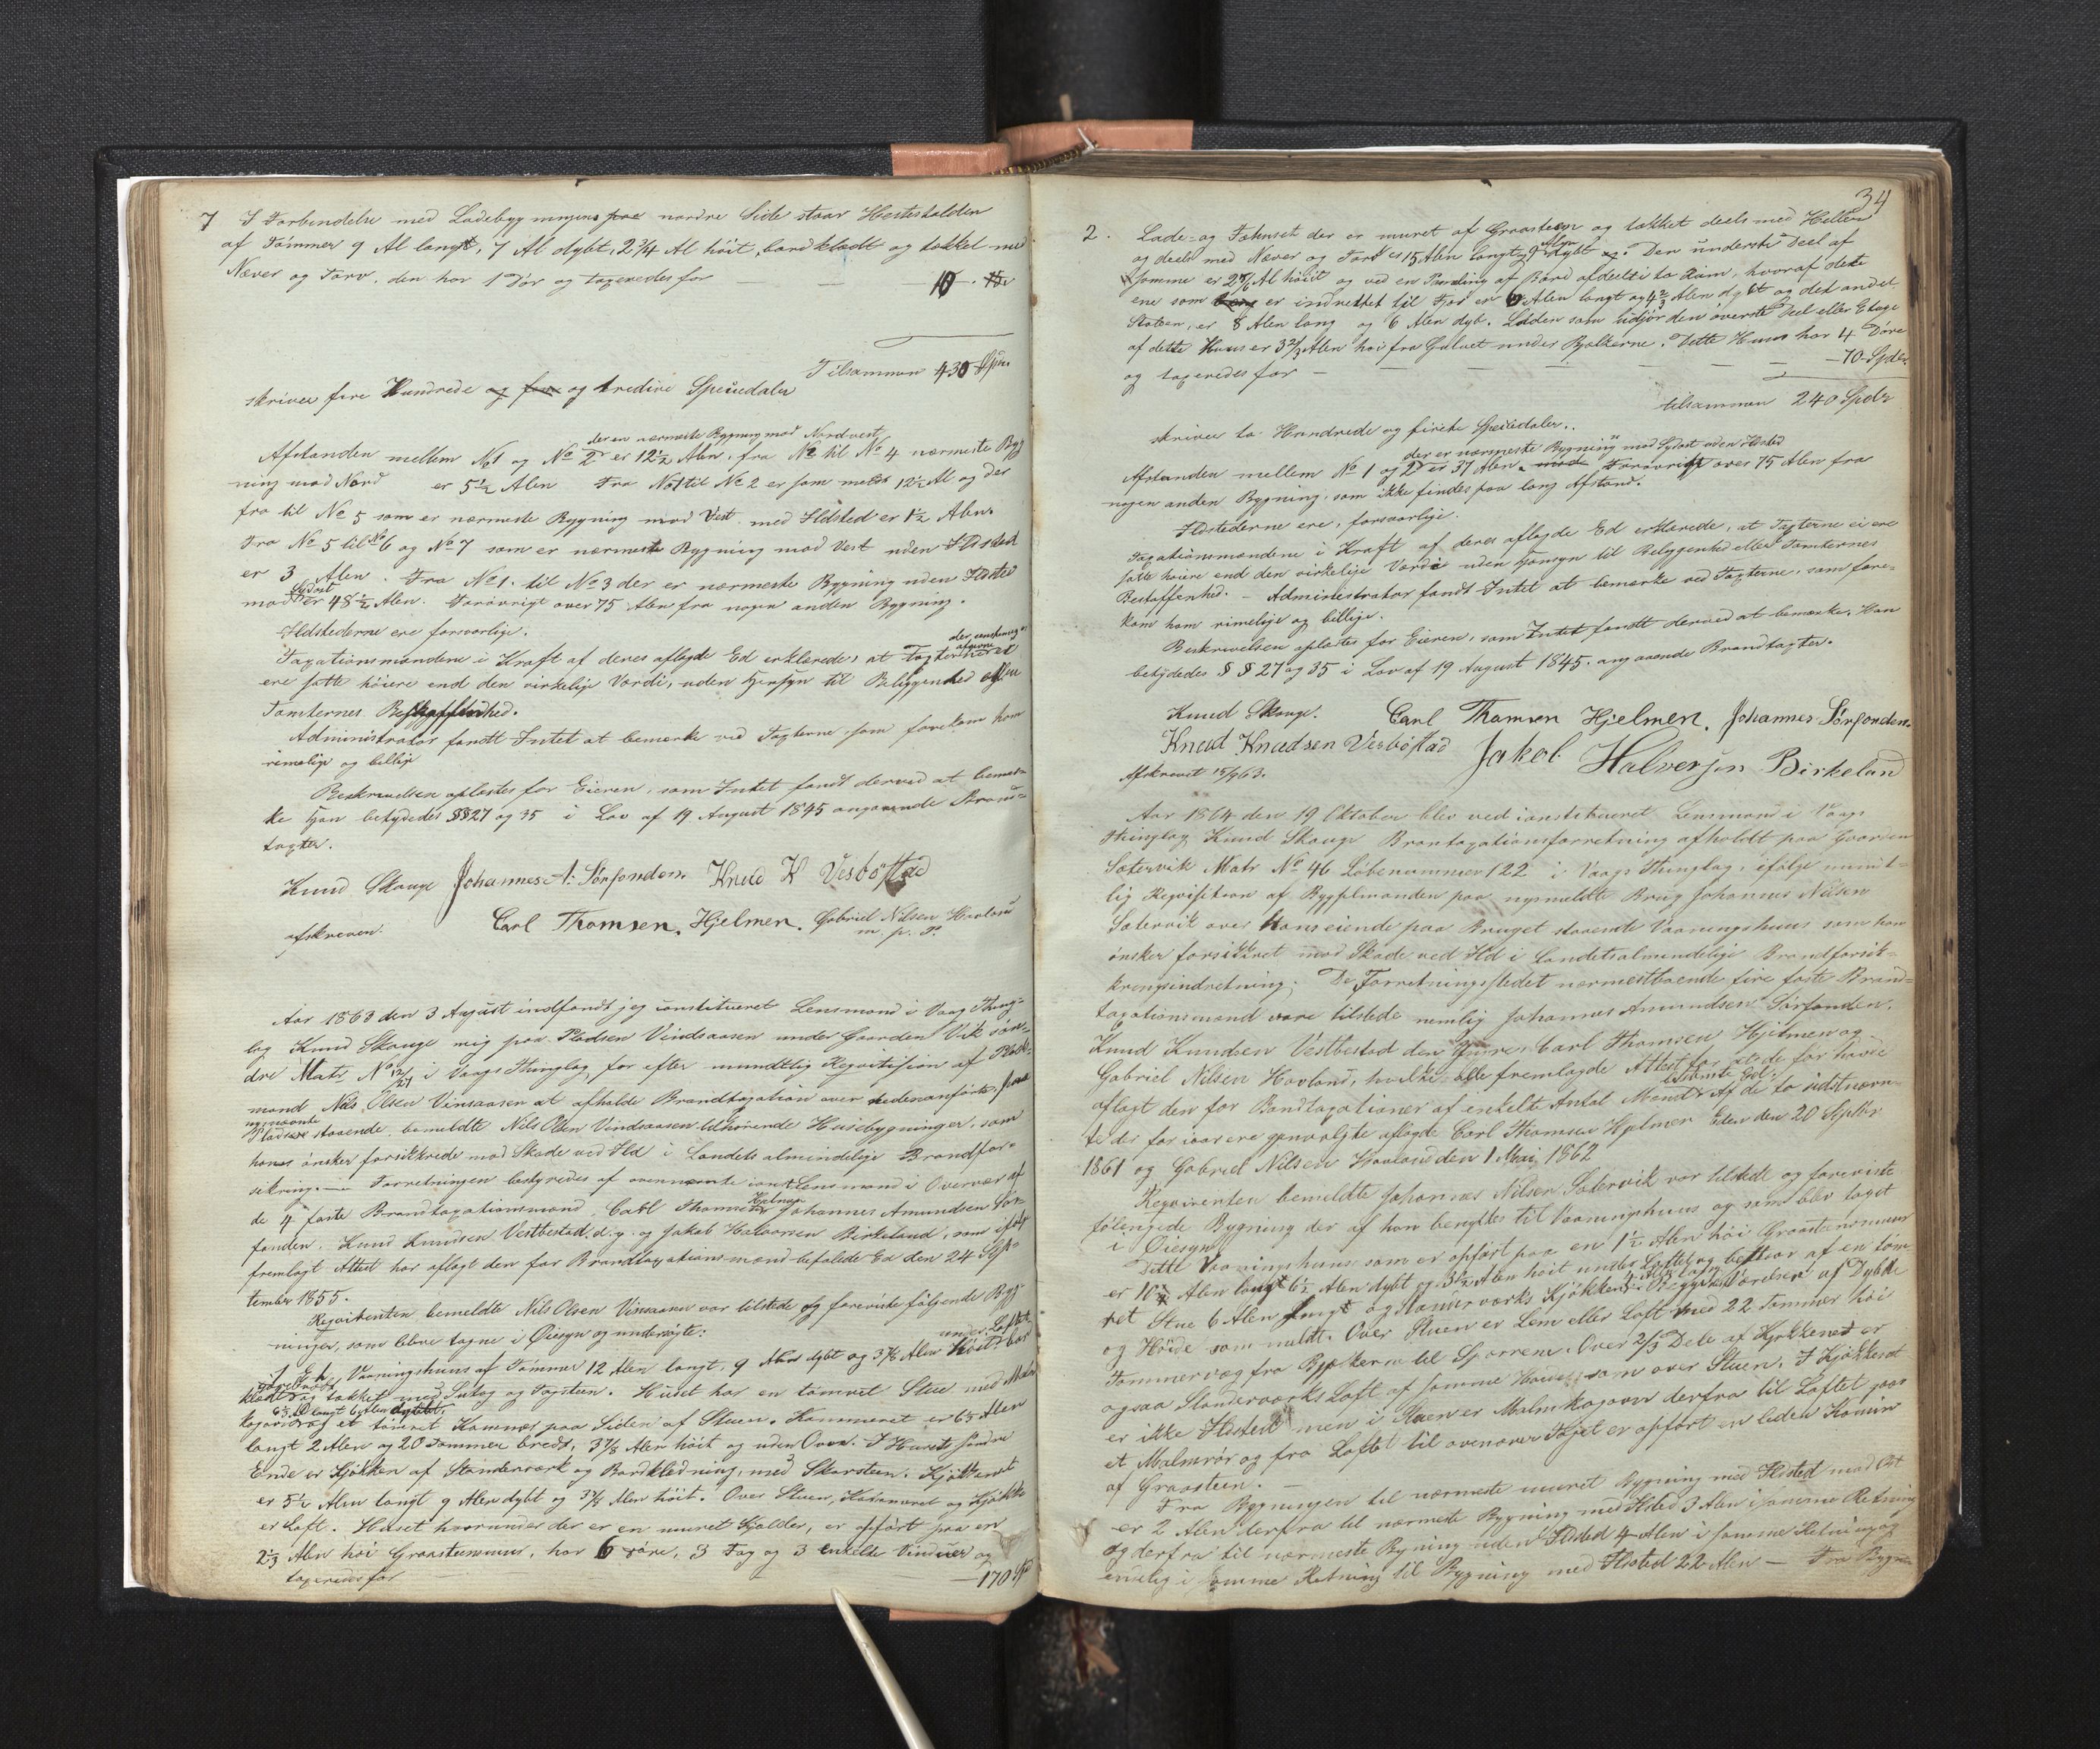 7 I Forbindelse med Ladebygningens paa nordre Side staar Hestestalden
af Tømmer 9 Al langt, 7 Al dybt, 2 3/4 Al høit, bordklædt og tækket med
Næver og Torv. den har 1 Dør og taxeredes for — — 10
Tilsammen 430 Spd
skriver fire Hundrede og og tredive Speciedaler
der er nærmeste Bygning mod Nordvest
Afstanden mellem No 1 og No 2 er 12 1/2 Alen, fra No til No 4 nærmeste Byg
ning mod Nord er 5 1/2 Alen Fra No 1 til No 2 er som meldt 12 1/2 Al og der
fra til No 5 som er nærmeste Bygning mod Vest med Ildsted er 1 1/2 Alen.
Fra No 5 til No 6 og No 7 som er nærmeste Bygning mod Vest uden Ildsted
er 3 Alen. Fra No 1 til No 3 der er nærmeste Bygning uden Ildsted
mod Sydost er 48 1/2 Alen. Forøvrigt over 75 Alen fra nogen anden Bygning.
Ildstederne ere forsvarlige.
Taxationsmændene i Kraft af deres aflagde Ed erklærede, at Taxterne
ere satte høiere end den virkelige Værdi, uden Hensyn til Beliggenhed eller
Tomternes Beskaffenhed.
Administrator fandt Intet at bemærke ved Taxterne, som forekom ham
rimelige og billige
Beskrivelsen oplæstes for Eieren, som Intet fandt derved at bemær-
ke Han betydedes §§ 27 og 35 i Lov af 19 August 1845 angaaende Brand-
taxter.
Knud Skauge Johannes A. Sørfonden. Knud K Vesbøstad
afskreven. Carl Thomsen. Hjelmen. Gabriel Nilsen Havland
m. p. P.
Aar 1863 den 3 August indfandt jeg constitueret Lensmand i Vaag Thing-
lag Knud Skauge mig paa Pladsen Vindsaasen under Gaarden Vik søn-
dre Matr No 12/27 i Vaags Thinglag for efter mundtlig Requisition af Plads-
mand Nils Olsen Vinsaasen at afholde Brandtaxation over nedenanførte paa
nysnævnte
Pladsen staaende bemeldte Nils Olsen Vindsaasen tilhørende Husebygninger, som
hans ønsker forsikkrede mod Skade ved Ild i Landets almindelige Brandfor-
sikring. — Forretningen bestyredes af ovennævnte const Lensmand i Overvær af
de 4 faste Brandtaxationsmænd, Carl Thomsen Hjelmen Johannes Amundsen Sør-
fonden. Knud Knudsen Vestbøstad d. y. og Jakob Halvorsen Birkeland, som ifølge
fremlagt Attest har aflagt den for Brandtaxationsmænd befalede Ed den 24 Sep-
tember 1855.
Requirenten bemeldte Nils Olsen Vinsaasen var tilstede og foreviste følgende Byg-
ninger, som bleve tagne i Øiesyn og undersøgte:
under Loftet
1. Et Vaaningshuus af Tømmer 12 Alen langt, 9 Alen dybt og 3 7/8 Alen høit bord
klædt og tækket med Sutag og Tagsteen. Huset har en tømret Stue med Malm
kagovn af et tømret Kammer paa Siden af Stuen. Kammeret er 6 1/2 Alen
langt 2 Alen og 20 Tommer bredt, 3 7/8 Alen høit og uden Ovn. I Husets søndre
Ende er Kjøkken af Stænderværk og Bordklædning, med Skorsteen. Kjøkkenet
er 5 1/2 Alen langt 9 Alen dybt og 3 7/8 Alen høit. Over Stuen, Kammeret og Kjøkken
er Loft. Huset hvorunder der er en muret Kjælder, er opført paa en
2 1/3 Alen høi Graasteensmuur, har 6 Døre, 3 Fag og 3 enkelte Vinduer og
taxeredes for — 170 Spd
34
2. Lade- og Fæhuset der er muret af Graasteen og tækket deels med Heller
og deels med Næver og Torv er 15 Alen langt 9 Alen dybt og. Den underste Deel af
samme er 2 5/6 Al høit og ved en Pandling af Bord afdeelt i to Rum, hvoraf dette
ene som er indrettet til Fjøs er 6 Alen langt og 4 2/3 Alen dybt og det andet
Stolsen, er 8 Alen lang og 6 Alen dyb. Laden som udgjør den øverste Deel eller Etage
af dette Huus er 3 2/3 Alen høi fra Gulvet under Bjelkerne. Dette Huus har 4 Døre
og taxeredes for — — — — — 70 Spdr
tilsammen 240 Spdr
skriver to Hundrede og firti Speciedaler.
der er nærmeste Bygning mod Sydost uden Ildsted
Afstanden mellem No 1 og 2 er 37 Alen. mod Forøvrigt over 75 Alen fra
nogen anden Bygning, som ikke findes paa lang Afstand.
Ildstederne ere forsvarlige.
Taxationsmændene i Kraft af deres aflagde Ed erklærede, at Taxterne ei ere
satte høiere end den virkelige Værdi uden Hensyn til Beliggenhed eller Tomternes
Beskaffenhed. — Administrator fandt Intet at bemærke ved Taxterne, som fore-
kom ham rimelige og billige.
Beskrivelsen oplæstes for Eieren, som Intet fandt derved at bemærke. Han
betydedes § § 27 og 35 i Lov af 19 August 1845. angaaende Brandtaxter.
Knud Skauge. Carl Thomsen Hjelmen. Johannes Sørfonden.
Knud Knudsen Vesbøstad Jakob Halversen Birkeland
Afskrevet 15/9 63.
Aar 1864 den 19 Oktober blev ved constitueret Lensmand i Vaags
Thinglag Knud Skauge Brantaxationsforretning afholdt paa Gaarden
Sætervik Matr No 46 Løbenummer 122 i Vaags Thinglag, ifølge mundt-
lig Reqvisition af Bygselmanden paa nysmeldte Brug Johannes Nilsen
Sætervik over hans eiende paa Bruget staaende Vaaningshuus som han
ønsker forsikkret mod Skade ved Ild i Landets almindelige Brandforsik-
kringsindretning. De Forretningsstedet nærmestboende fire faste Brand-
taxationsmænd vare tilstede nemlig Johannes Amundsen Sørfonden.
Knud Knudsen Vestbøstad den Yngre, Carl Thomsen Hjelmen og
Gabriel Nilsen Havland, hvilke alle fremlagde Attest for at de for have
aflagt den for Bandtaxationer af enkelte Antal Mænd bestemte Ed. Af de to sidstnævn-
te der for iaar ere gjenvalgte aflagde Carl Thomsen Hjelmen Eden den 20 Septbr
1861 og Gabriel Nilsen Havland den 1 Mai 1862
Requirenten bemeldte Johannes Nilsen Sætervik var tilstede og foreviste
følgende Bygning der af ham benyttes til Vaaningshuus og som blev taget
i Øiesyn
Dette Vaaningshuus som er opført paa en 1 1/2 Alen høi Graasteensmuur
er 10 1/2 Alen langt 6 1/2 Alen dybt og 3 1/2 Alen høit under Loftet og bestaar af en tøm
ret Stue 6 Alen langt og Stenderværks Kjøkken Begge Værelser af Dybde
og Høide som meldt. Over Stuen er Lem eller Loft med 22 Tommer høi
Tømmervæg fra Bjelkerne til Sperrene. Over 2/3 Dele af Kjøkkenet er
ogsaa Stænderværks Loft af samme Høide som over Stuen. I Kjøkkenet
er ikke Ildsted men i Stuen er Malmkagovn derfra til Loftet gaar
et Malmrør og fra Loftet til ovenover Taget er opført en liden Kamin
af Graasteen. —
Fra Bygningen til nærmeste muret Bygning med Ildsted mod Ost
er 2 Alen derfra til nærmeste Bygning med Ildsted 3 Alen i samme Retning
og derfra til nærmeste Bygning uden Ildsted 4 Alen i samme Retning og
endelig i samme Retning til Bygning med Ildsted 22 Alen — Fra Bygn